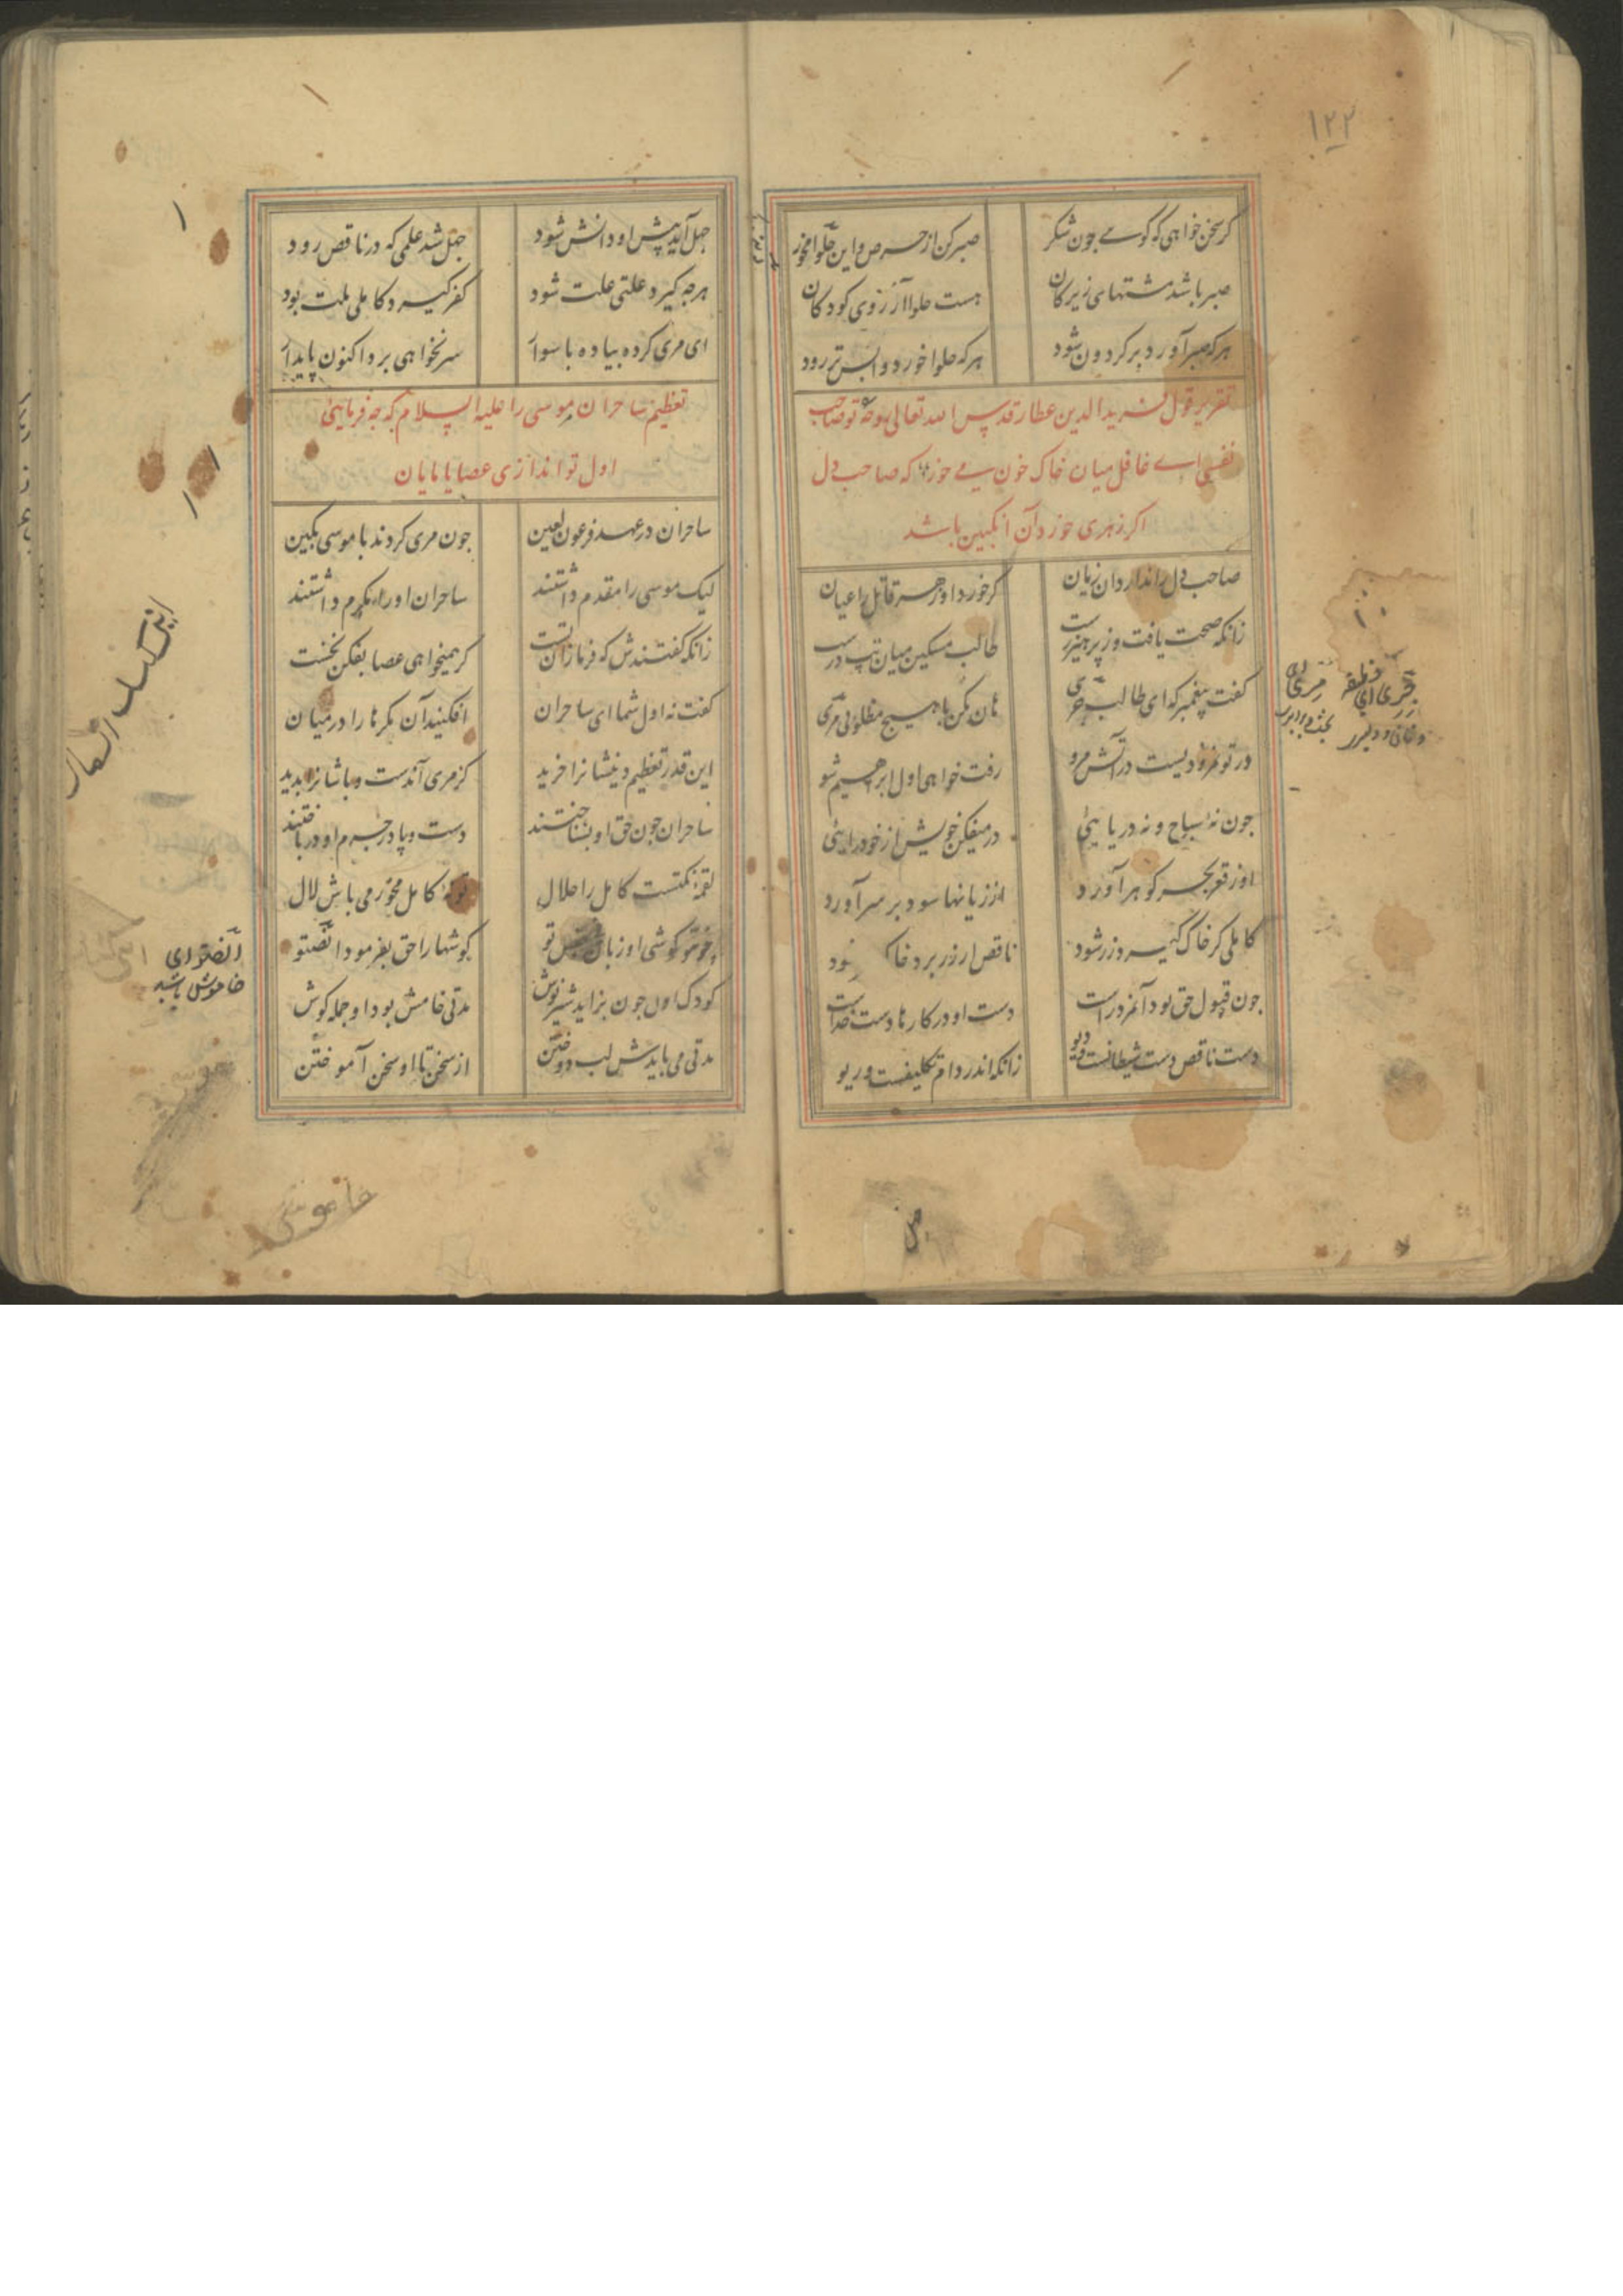 ۱۲۲
گر سخن خواهی که گویے چون شکر
صبر کن از حرص و این حلوا مخور
صبر باشد مشتهای زیرکان
هست حلوا آرزوی کودکان
هرکه صبر آورد بر گردون شود
هرکه حلوا خورد واپس تر رود
تقریر قول فرید الدین عطار قدس الله تعالی روحه تو صاحب
نفسی اے غافل میان خاک خون مے خور که صاحب دل
اگر زهری خورد آن انگبین باشد
صاحب دل را ندارد آن زیان
گر خورد او زهر قاتل را عیان
زانکه صحت یافت وز پرهیز رست
طالب مسکین میان تب درست
گفت پیغمبر که ای طالب جری
هان مکن با هیچ مطلوبی مری
در تو نمرودیست در آتش مرو
رفت خواهی اول ابراهیم شو
چون نهٔ سباح و نه دریایئی
در میفکن خویش از خودرایئی
او ز قعر بحر گوهر آورد
از زیانها سود بر سر آورد
کاملی گر خاک گیرد زر شود
ناقص ار زر برد خاک شود
چون قبول حق بود آن مرد راست
دست او در کارها دست خداست
دست ناقص دست شیطانست و دیو
زانکه اندر دام تکلیفست و ریو
جهل آید پیش او دانش شود
جهل شد علمی که در ناقص رود
هرچه گیرد علتی علت شود
کفر گیرد کاملی ملت بود
ای مری کرده پیاده با سوار
سر نخواهی برد اکنون پای دار
تعظیم ساحران موسی را علیه السلام که چه فرمایئی
اول تو اندازی عصا یا مایان
ساحران در عهد فرعون لعین
چون مری کردند با موسی بکین
لیک موسی را مقدم داشتند
ساحران او را مکرم داشتند
زانکه گفتندش که فرمان آن تست
گر همیخواهی عصا بفکن نخست
گفت نه اول شما ای ساحران
افکنید آن مکرها را در میان
این قدر تعظیم دینشانرا خرید
کز مری آن دست و پاشانرا برید
ساحران چون حق او بشناختند
دست و پا در جرم او درباختند
لقمه نکتست کامل را حلال
تو نهٔ کامل مخور می باش لال
چو تو گوشی او زبان نی جنس تو
گوشها را حق بفرمود انصتوا
کودک اول چون بزاید شیرنوش
مدتی خامش بود او جمله گوش
مدتی می بایدش لب دوختن
از سخن تا او سخن آموختن
انصتوا ای
خاموش باشید
خاموشی